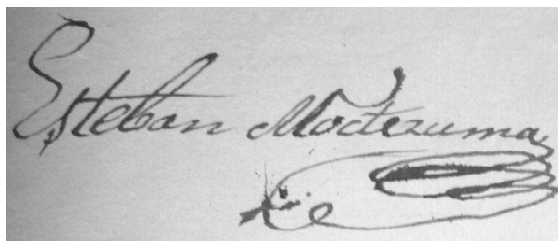 Esteban Moctezuma